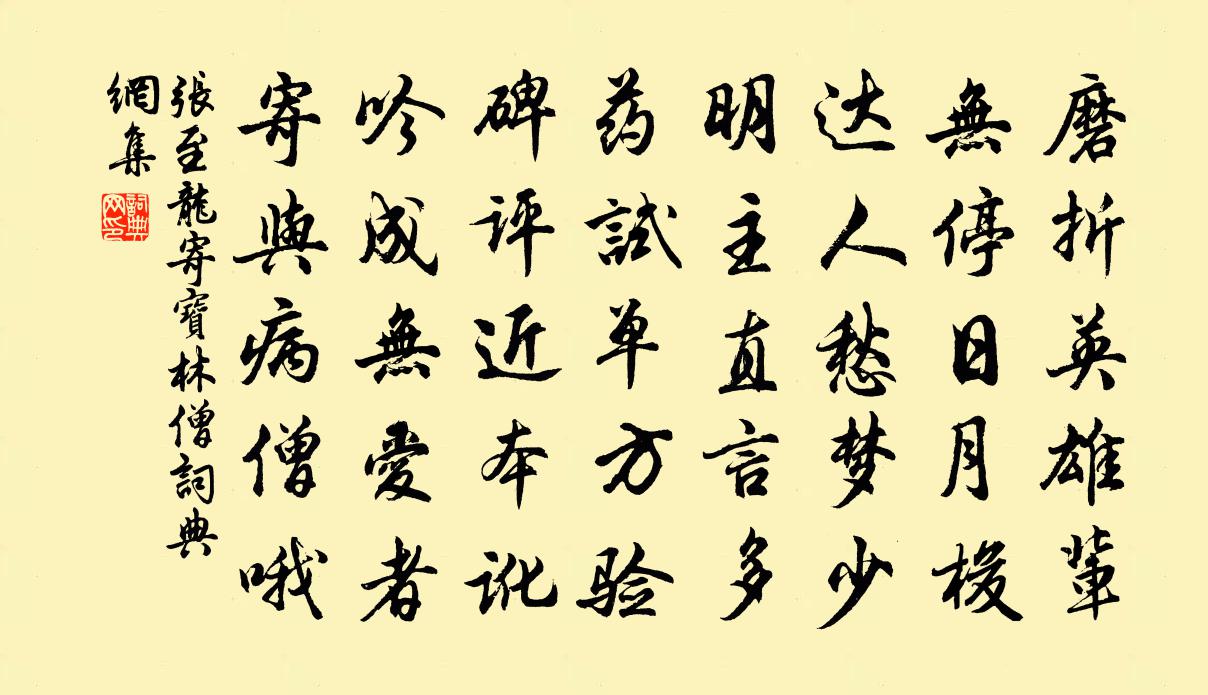 磨折英雄輩
無停日月梭
达人愁梦少
明主直言多
药試单方验
碑评近本讹
吟成無愛者
寄與病僧哦
張至龍寄寶林僧詞典
網集
詞典网印